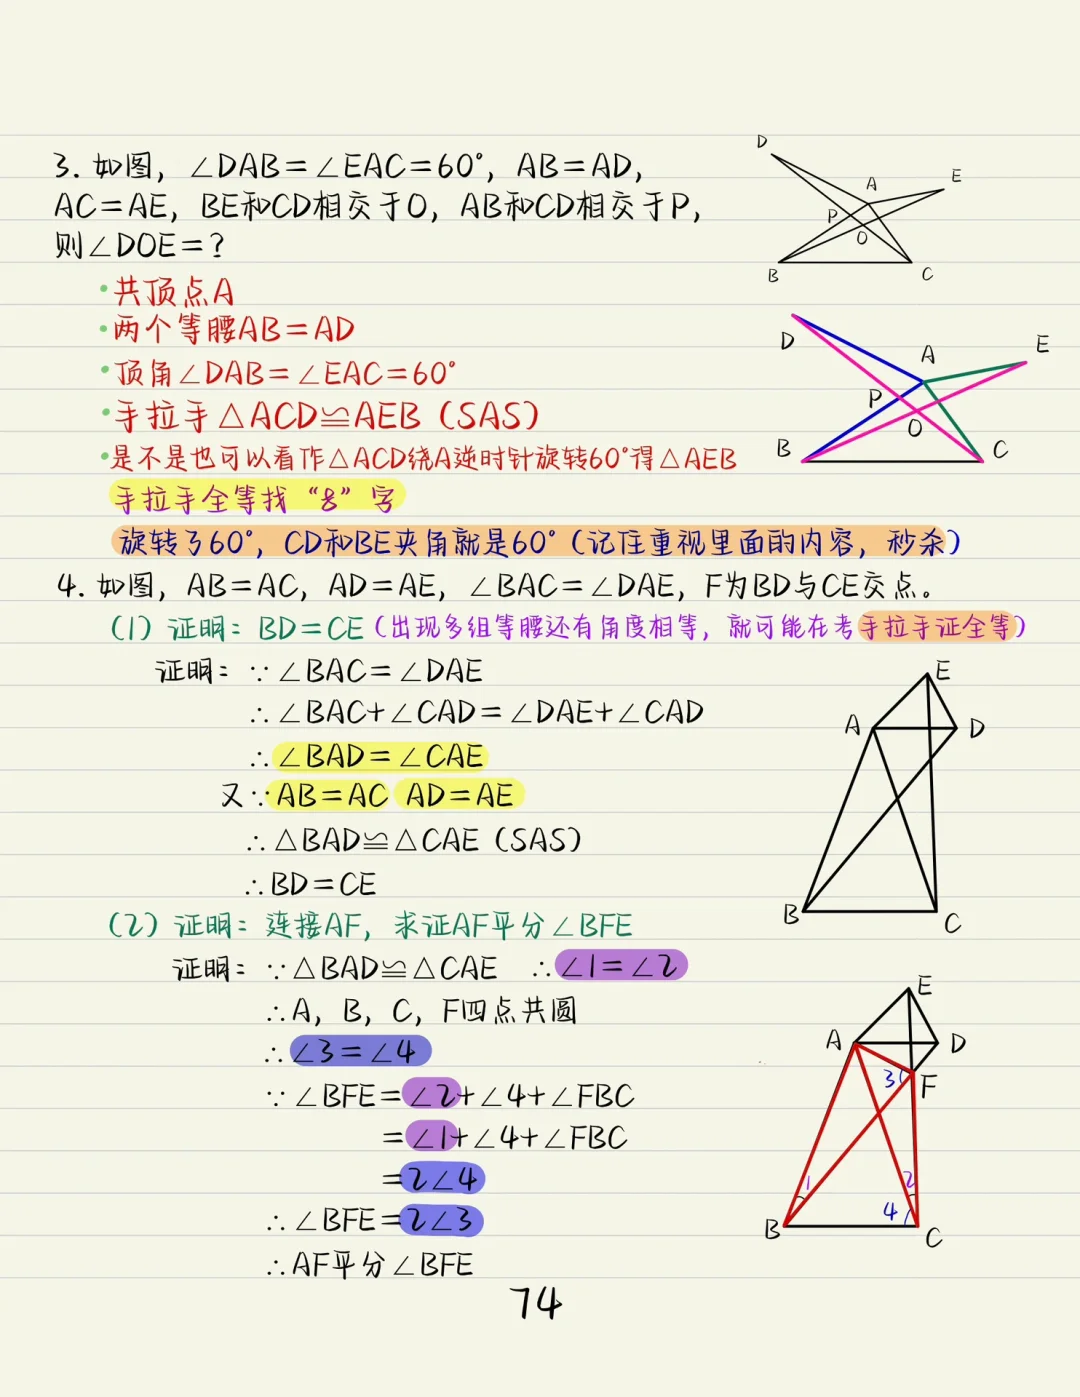 3. 如图，∠DAB=∠EAC=60°，AB=AD，
AC=AE，BE和CD相交于O，AB和CD相交于P，
则∠DOE=?
•共顶点A
•两个等腰AB=AD
•顶角∠DAB=∠EAC=60°
•手拉手△ACD≌AEB（SAS）
•是不是也可以看作△ACD绕A逆时针旋转60°得△AEB
手拉手全等找“8”字
旋转了60°，CD和BE夹角就是60°（记住重视里面的内容，秒杀）
D
A
E
P
O
B
C
D
A
E
P
O
B
C
4. 如图，AB=AC，AD=AE，∠BAC=∠DAE，F为BD与CE交点。
（1）证明：BD=CE（出现多组等腰还有角度相等，就可能在考手拉手证全等）
证明：∵∠BAC=∠DAE
∴∠BAC+∠CAD=∠DAE+∠CAD
∴∠BAD=∠CAE
又∵AB=AC AD=AE
∴△BAD≌△CAE（SAS）
∴BD=CE
E
A
D
B
C
（2）证明：连接AF，求证AF平分∠BFE
证明：∵△BAD≌△CAE ∴∠1=∠2
∴A，B，C，F四点共圆
∴∠3=∠4
∵∠BFE=∠2+∠4+∠FBC
=∠1+∠4+∠FBC
=2∠4
∴∠BFE=2∠3
∴AF平分∠BFE
E
A
D
3
F
1
2
4
B
C
74